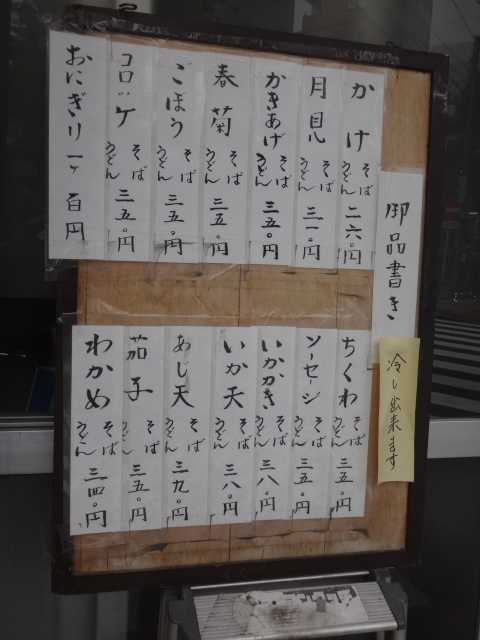 御品書き
冷し出来ます
かけ そば うどん 二六〇円
月見 そば うどん 三一〇円
かきあげ そば うどん 三五〇円
春菊 そば うどん 三五〇円
ごぼう そば うどん 三五〇円
コロッケ そば うどん 三五〇円
おにぎり 一ヶ 百円
ちくわ そば うどん 三五〇円
ソーセージ そば うどん 三五〇円
いかかき そば うどん 三八〇円
いか天 そば うどん 三八〇円
あじ天 そば うどん 三九〇円
茄子 そば うどん 三五〇円
わかめ そば うどん 三四〇円